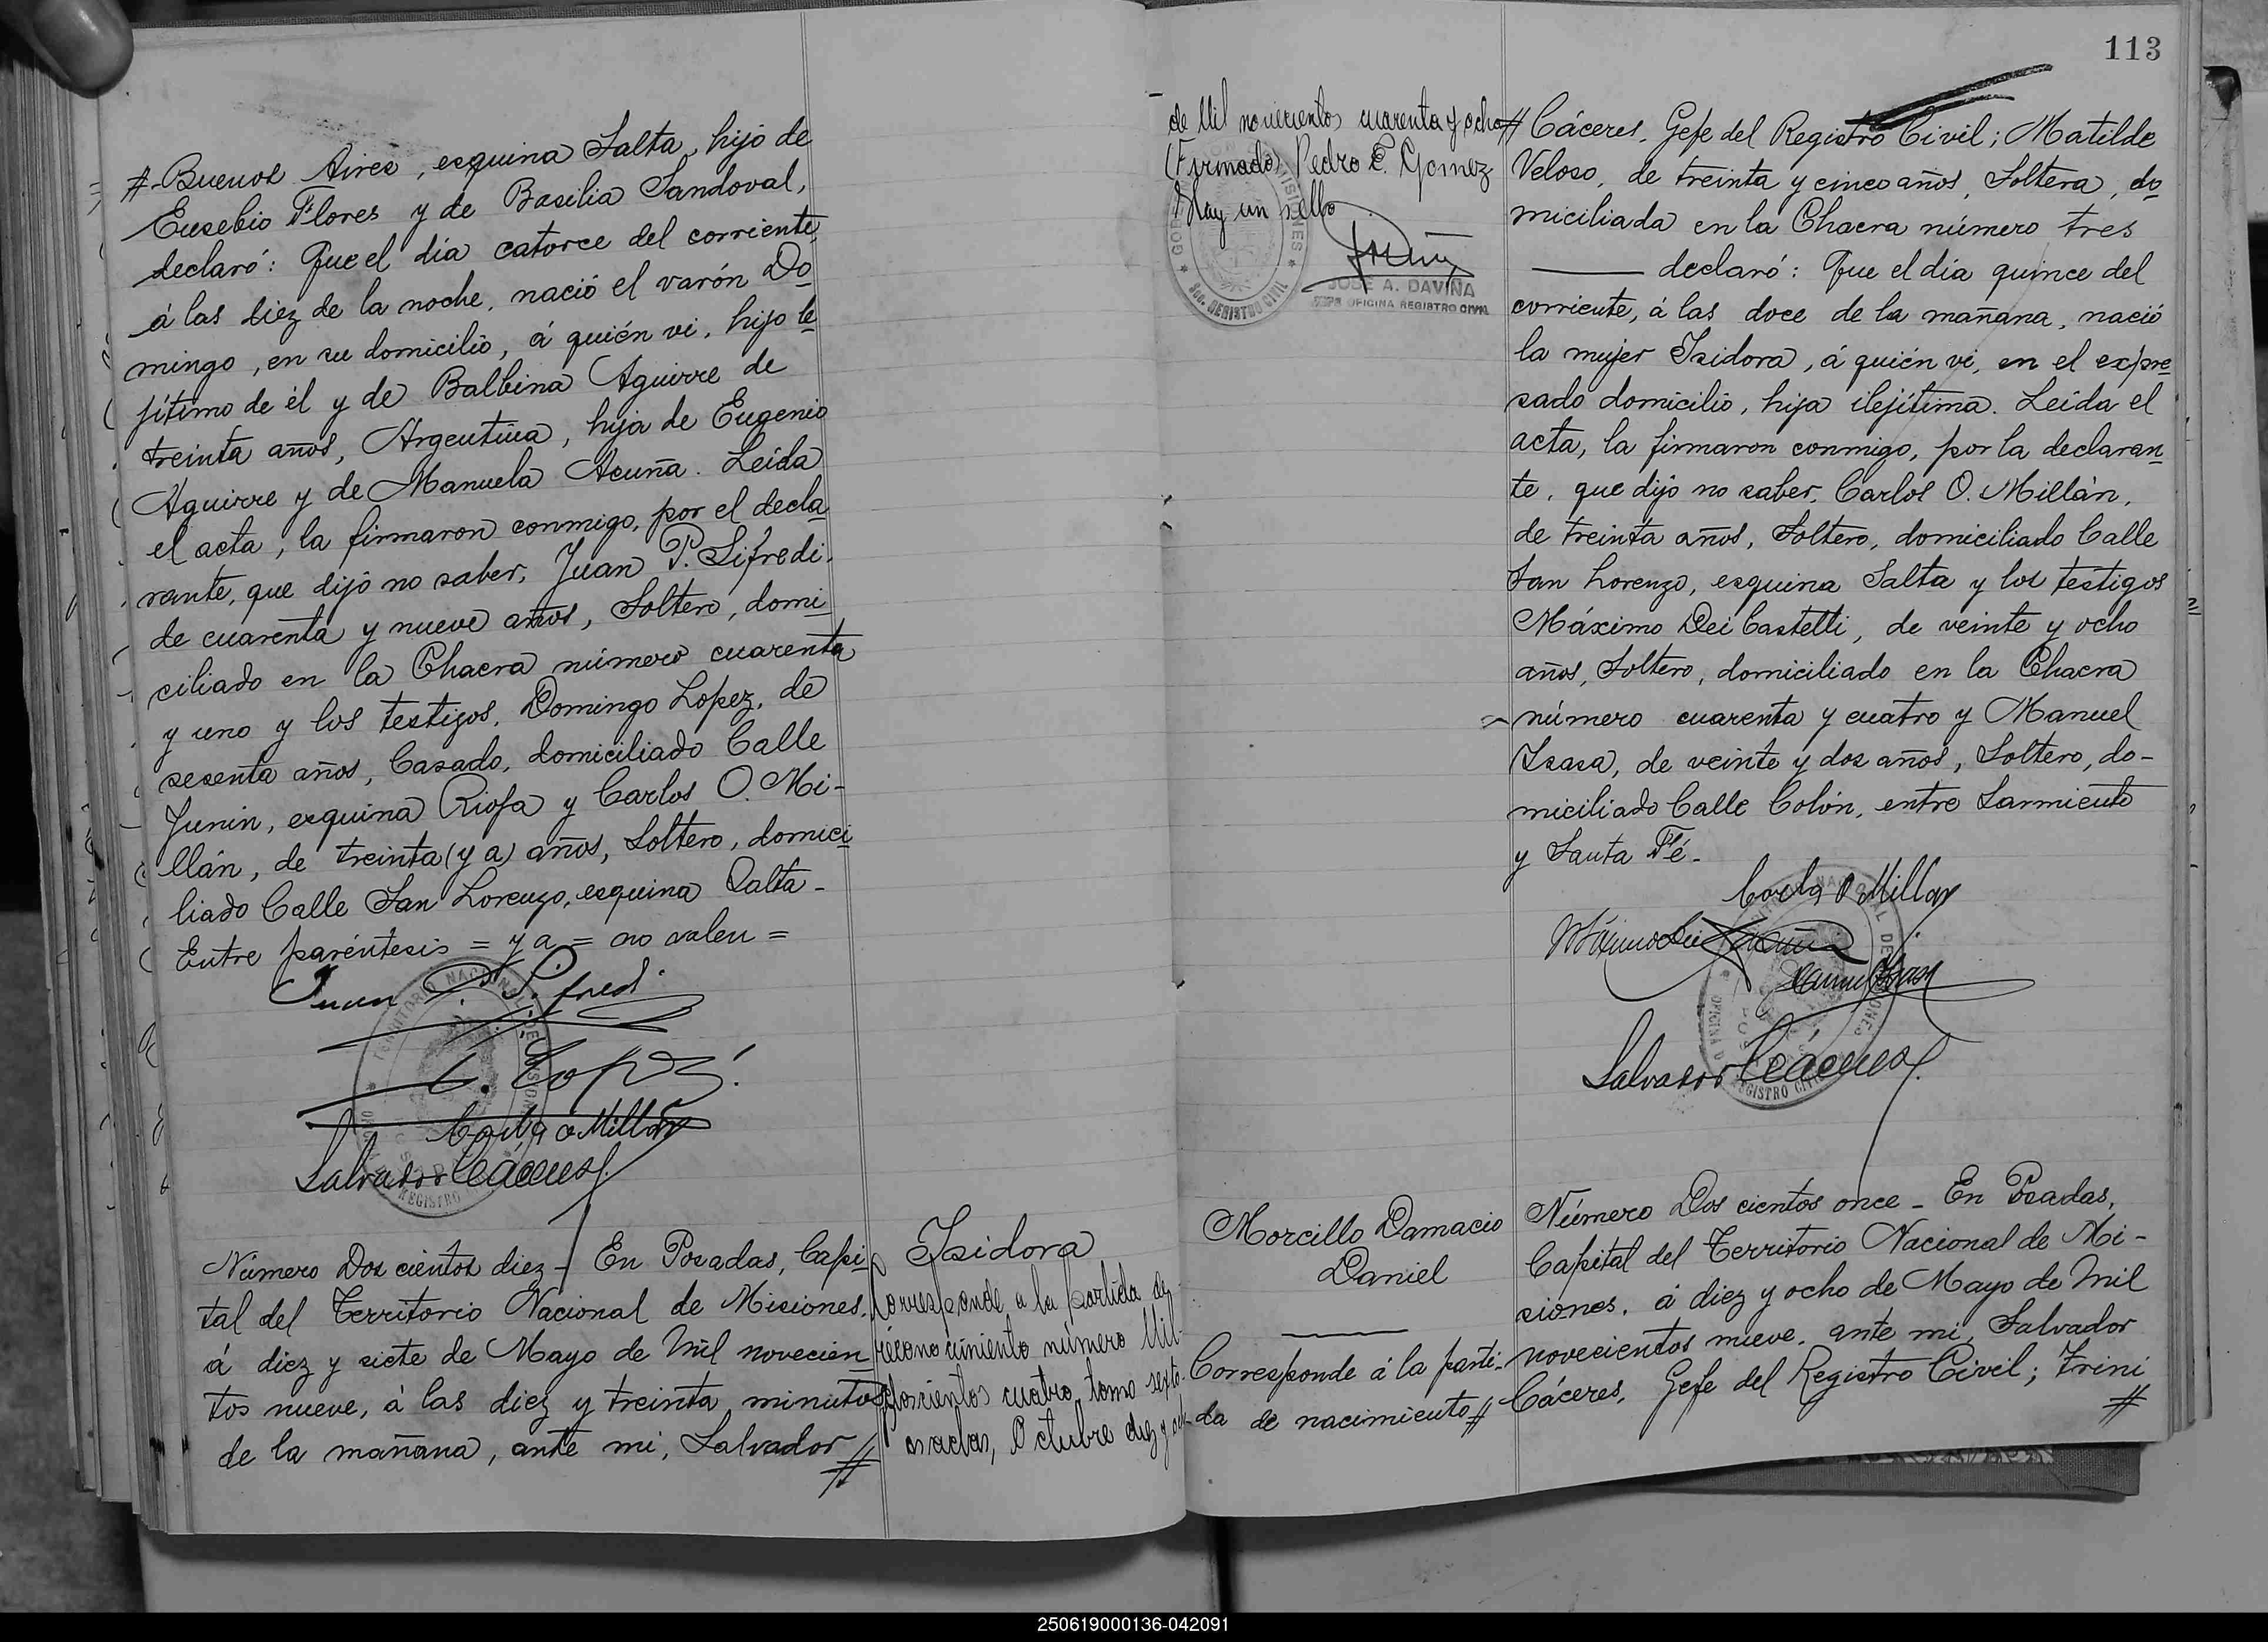 #-Buenos Aires, esquina Salta, hijo de
Eusebio Flores y de Basilia Sandoval,
declaró: Que el día catorce del corriente,
á las diez de la noche, nació el varón Do
mingo, en su domicilio, á quién vi, hijo le
jítimo de él y de Balbina Aguirre de
treinta años, Argentina, hija de Eugenio
Aguirre y de Manuela Acuña. Leida
el acta, la firmaron conmigo, por el decla
rante, que dijo no saber, Juan P. Lifredi,
de cuarenta y nueve años, Soltero, domi
ciliado en la Chacra número cuarenta
y uno y los testigos, Domingo Lopez, de
sesenta años, Casado, domiciliado Calle
Junin, esquina Rioja y Carlos O. Mi-
llán, de treinta (y a) años, Soltero, domici
liado Calle San Lorenzo, esquina Salta-
Entre paréntesis = y a = no valen =
Juan P. Lifredi
D. Lopez
Carlos O Millan
Salvador Cáceres
Número Dos cientos diez - En Posadas, Capi
tal del Territorio Nacional de Misiones,
á diez y siete de Mayo de Mil novecien
tos nueve, á las diez y treinta minutos
de la mañana, ante mi, Salvador #
Isidora
Corresponde a la partida de
reconocimiento número Mil
doscientos cuatro, tomo sexto
Posadas, Octubre diez y
113
de Mil novecientos cuarenta y ocho
(Firmado) Pedro E. Gomez
Hay un sello
JOSE A. DAVIÑA
JEFE OFICINA REGISTRO CIVIL
SEC. REGISTRO CIVIL
# Cáceres, Gefe del Registro Civil; Matilde
Veloso, de treinta y cinco años, Soltera, do
miciliada en la Chacra número tres
declaró: Que el día quince del
corriente, á las doce de la mañana, nació
la mujer Isidora, á quién vi, en el expre
sado domicilio, hija ilejítima. Leida el
acta, la firmaron conmigo, por la declaran
te, que dijo no saber, Carlos O. Millán,
de treinta años, Soltero, domiciliado Calle
San Lorenzo, esquina Salta y los testigos
Máximo Dei Castelli, de veinte y ocho
años, Soltero, domiciliado en la Chacra
número cuarenta y cuatro y Manuel
Isasa, de veinte y dos años, Soltero, do-
miciliado Calle Colón, entre Sarmiento
y Santa Fé-
Carlos O Millan
Manuel Isasa
Salvador Cáceres
Morcillo Damacio
Daniel
Corresponde á la parti-
da de nacimiento #
Número Dos cientos once - En Posadas,
Capital del Territorio Nacional de Mi-
siones, á diez y ocho de Mayo de Mil
novecientos nueve, ante mi, Salvador
Cáceres, Gefe del Registro Civil; Trini
#
250619000136-042091